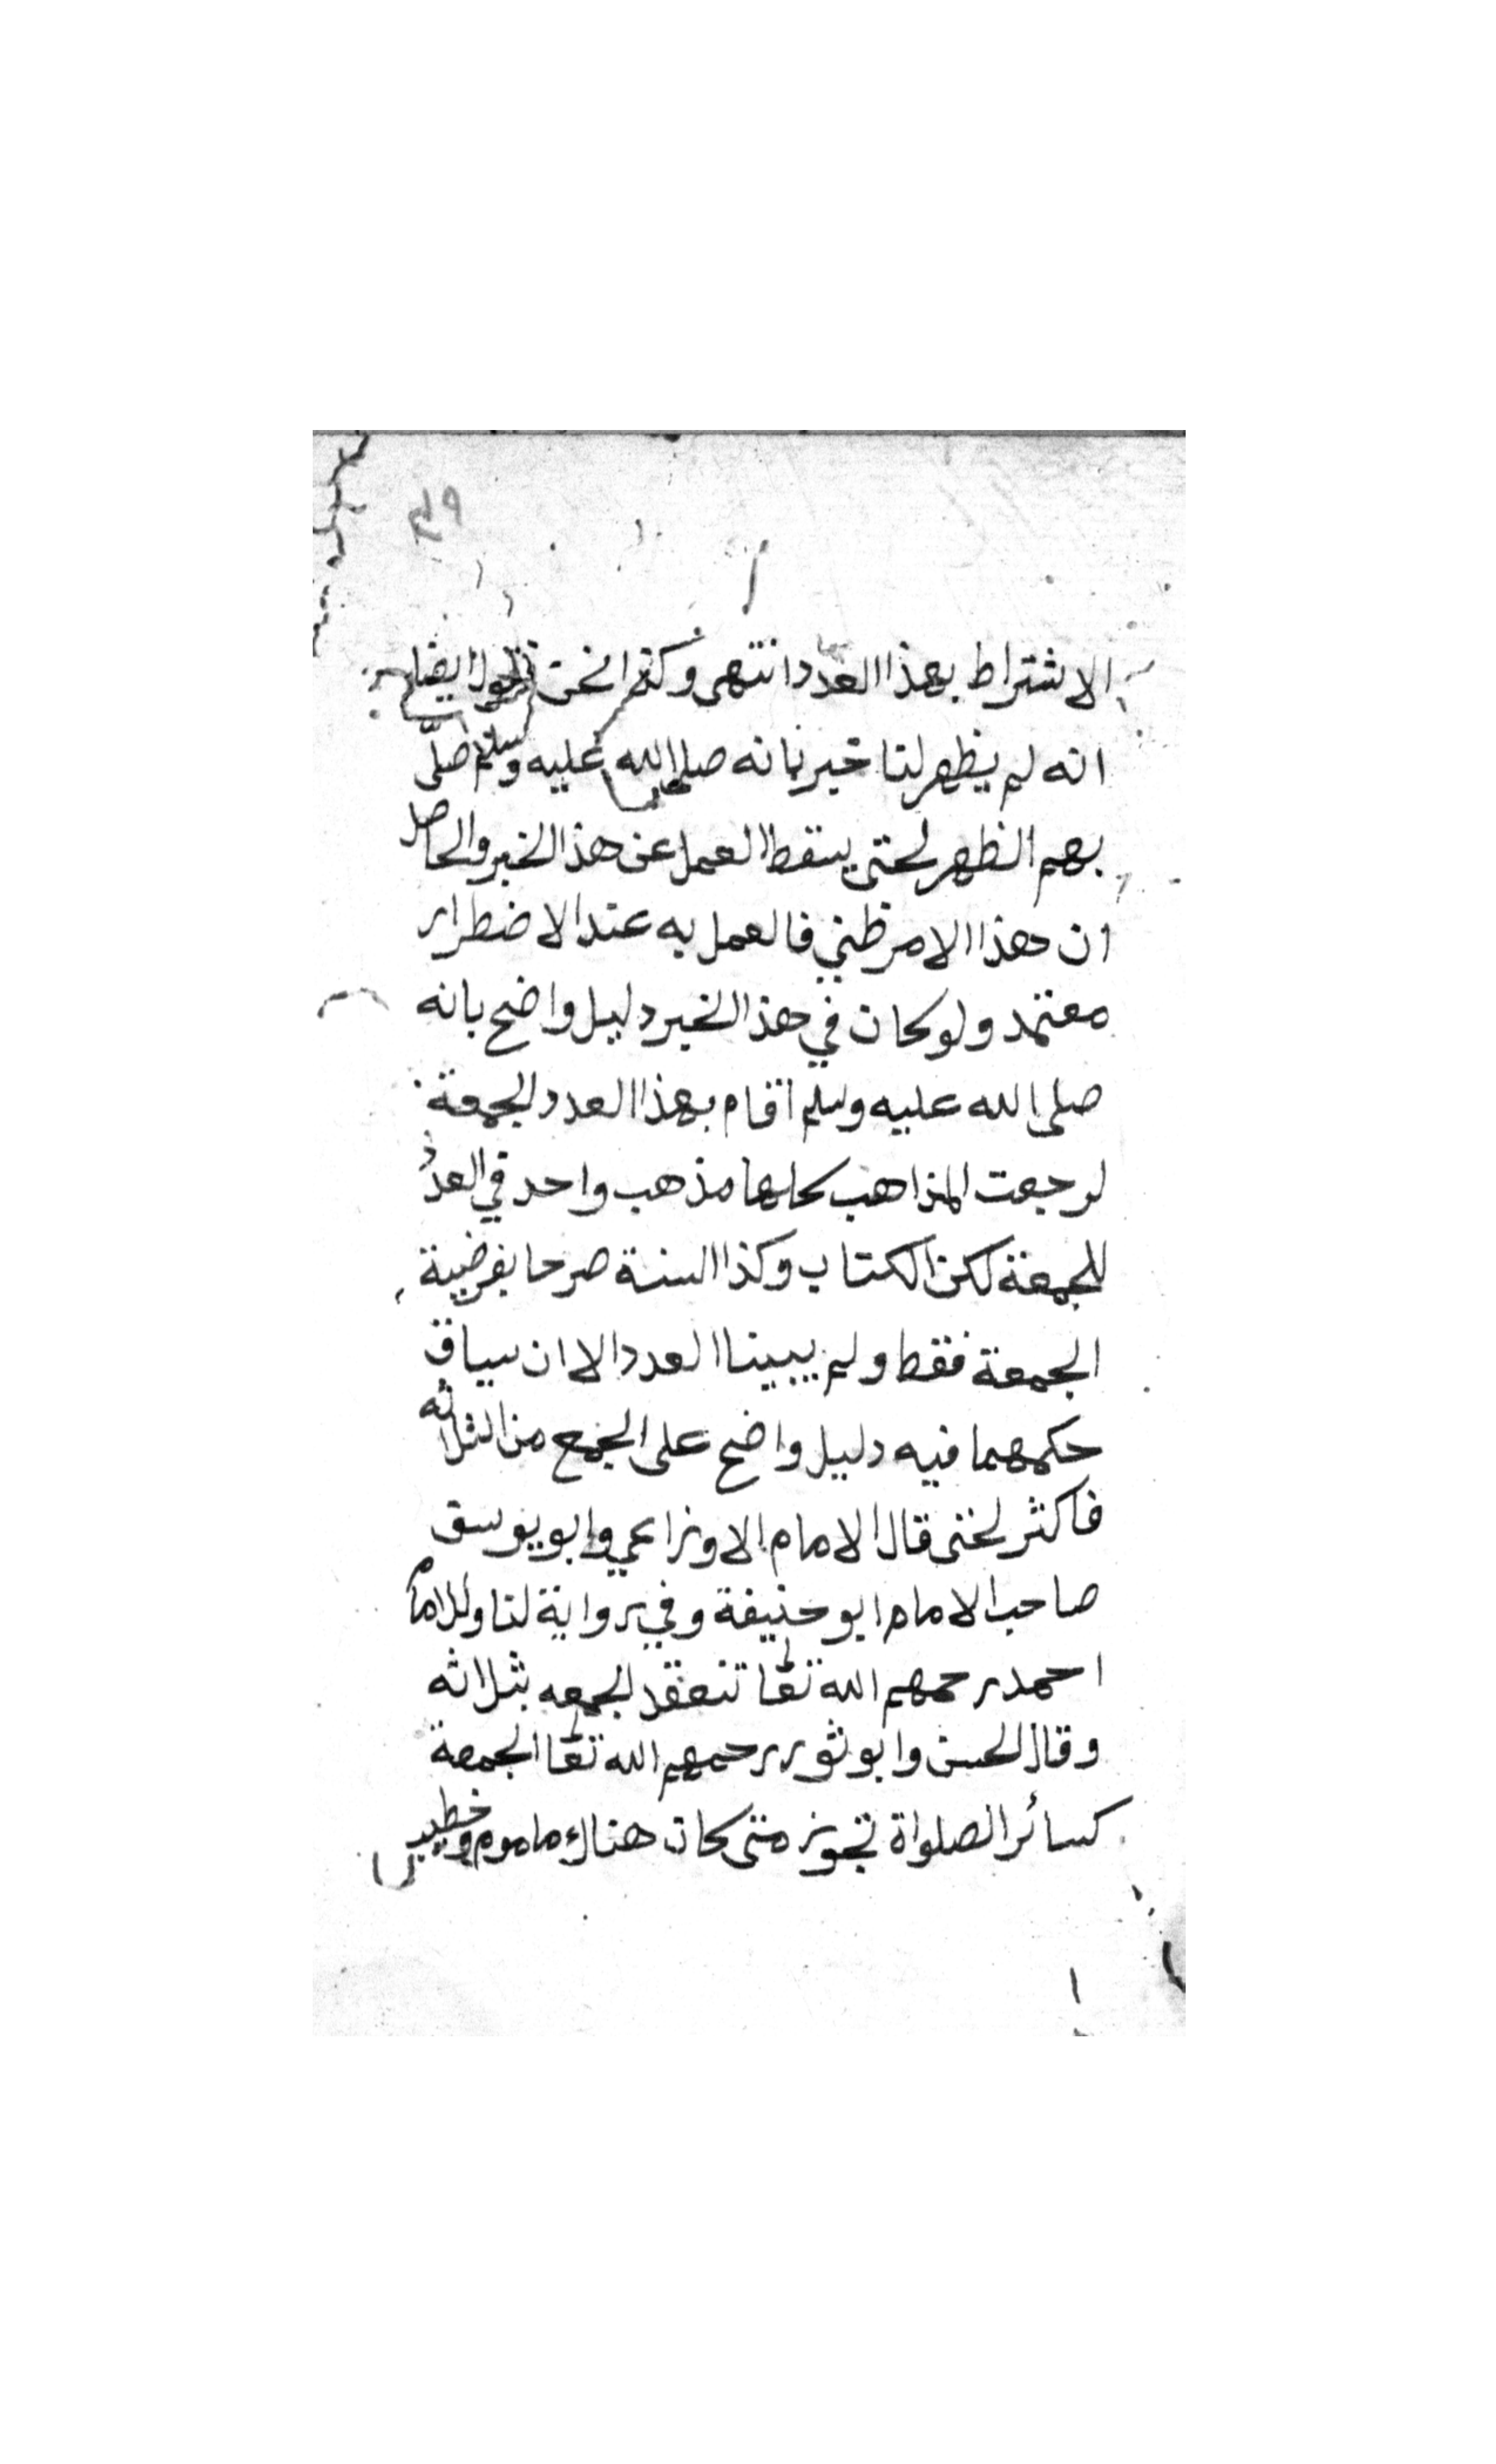 الاشتراط بهذا العدد انتهى وكذا نحن نقول ايضا
انه لم يظهر لنا خبر بانه صلى الله عليه وسلم صلّى
بهم الظهر لحتى يسقط العمل عن هذا الخبر والحاصل
ان هذا الامر ظني فالعمل به عند الاضطرار
معتمد ولو كان في هذا الخبر دليل واضح بانه
صلى الله عليه وسلم اقام بهذا العدد الجمعة
لرجعت المذاهب كلها مذهب واحد في العدد
للجمعة لكن الكتاب وكذا السنة صرحا بفرضية
الجمعة فقط ولم يبينا العدد الا ان سياق
حكمهما فيه دليل واضح على الجمع من الثلاثه
فاكثر لحتى قال الامام الاوزاعي وابو يوسف
صاحب الامام ابو حنيفة وفي رواية لنا وللامام
احمد رحمهم الله تعا تنعقد الجمعه بثلاثه
وقال الحسن وابو ثور رحمهم الله تعا الجمعة
كسائر الصلواة تجوز متى كان هناك ماموم وخطيب